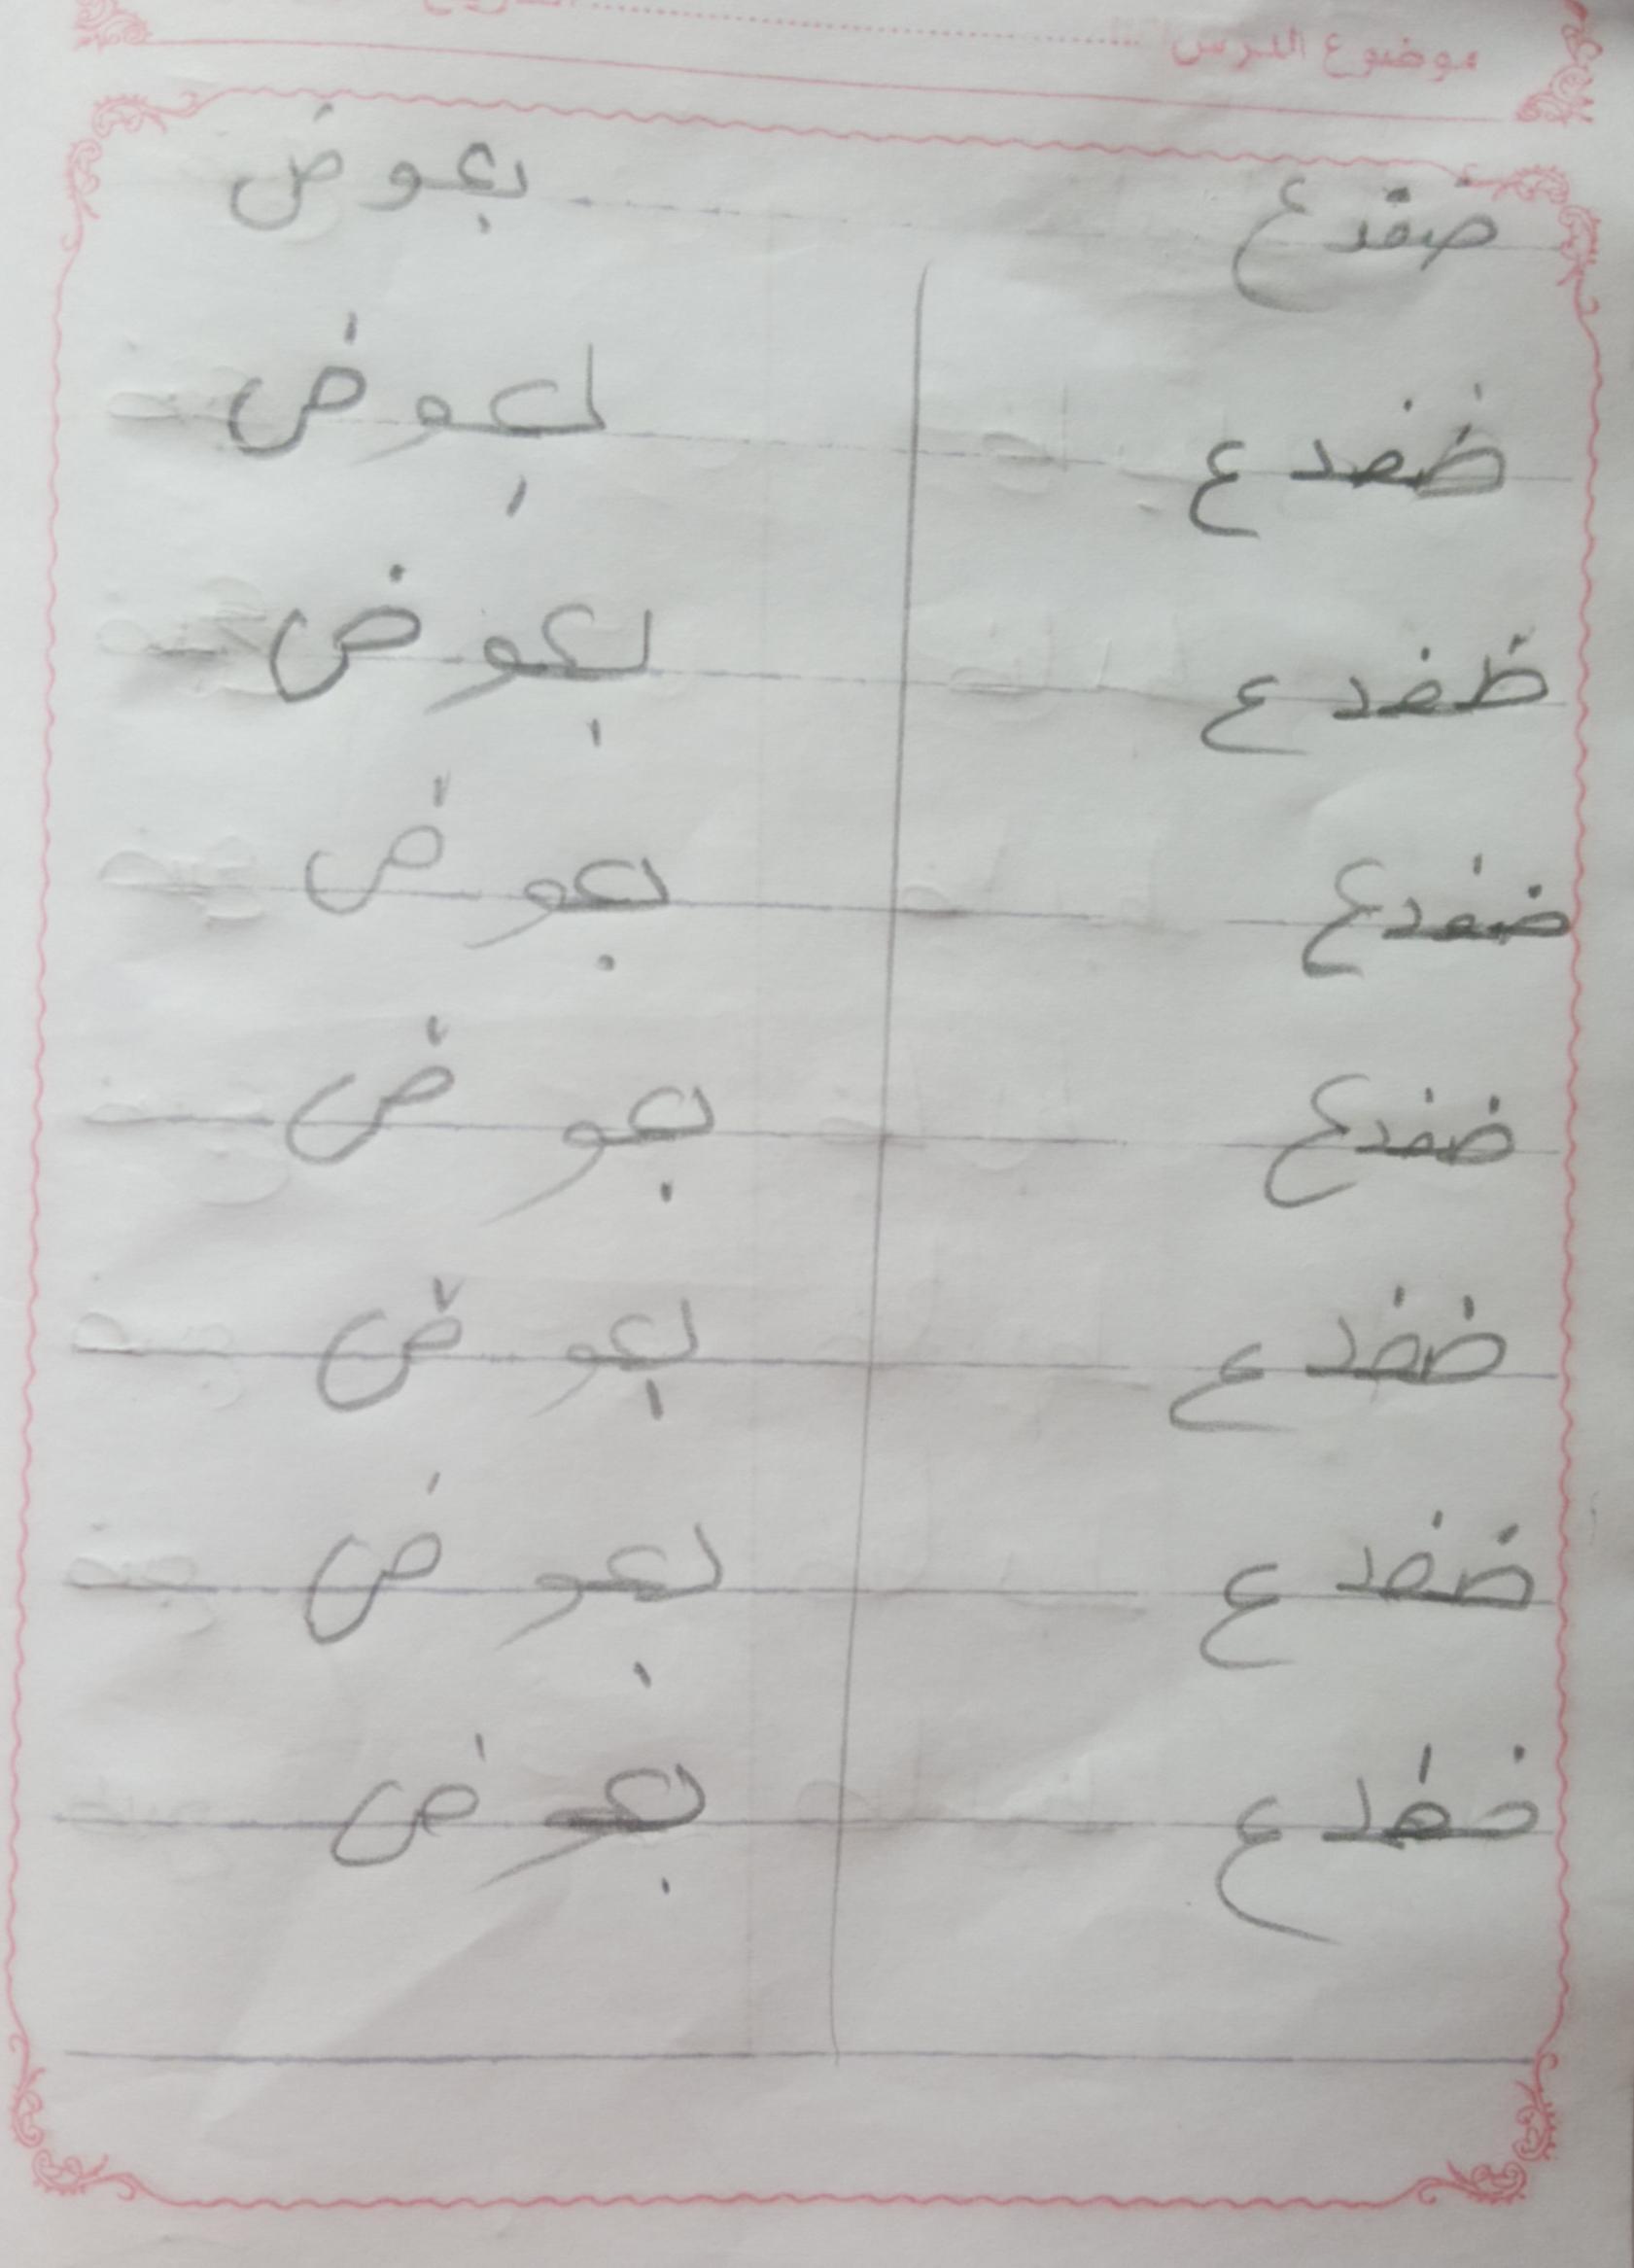 موضوع الدرس
ضفدع بعوض
ضفدع بعوض
ضفدع بعوض
ضفدع بعوض
ضفدع بعوض
ضفدع بعوض
ضفدع بعوض
ضفدع بعوض